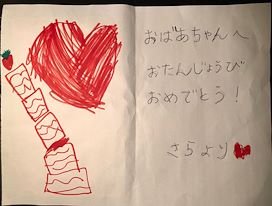 おばあちゃんへ
おたんじょうび
おめでとう！
さらより